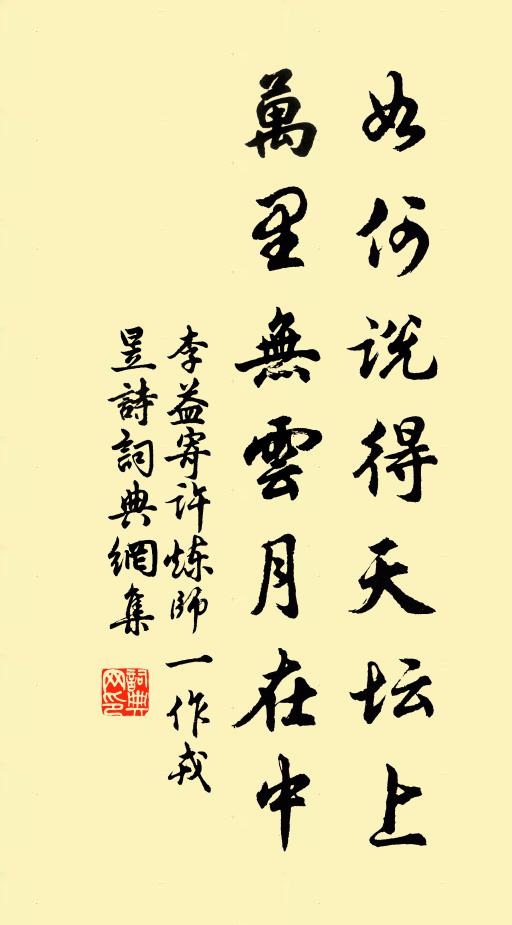 如何说得天坛上
萬里無雲月在中
李益寄许炼師一作戎
昱詩詞典網集
詞典网印